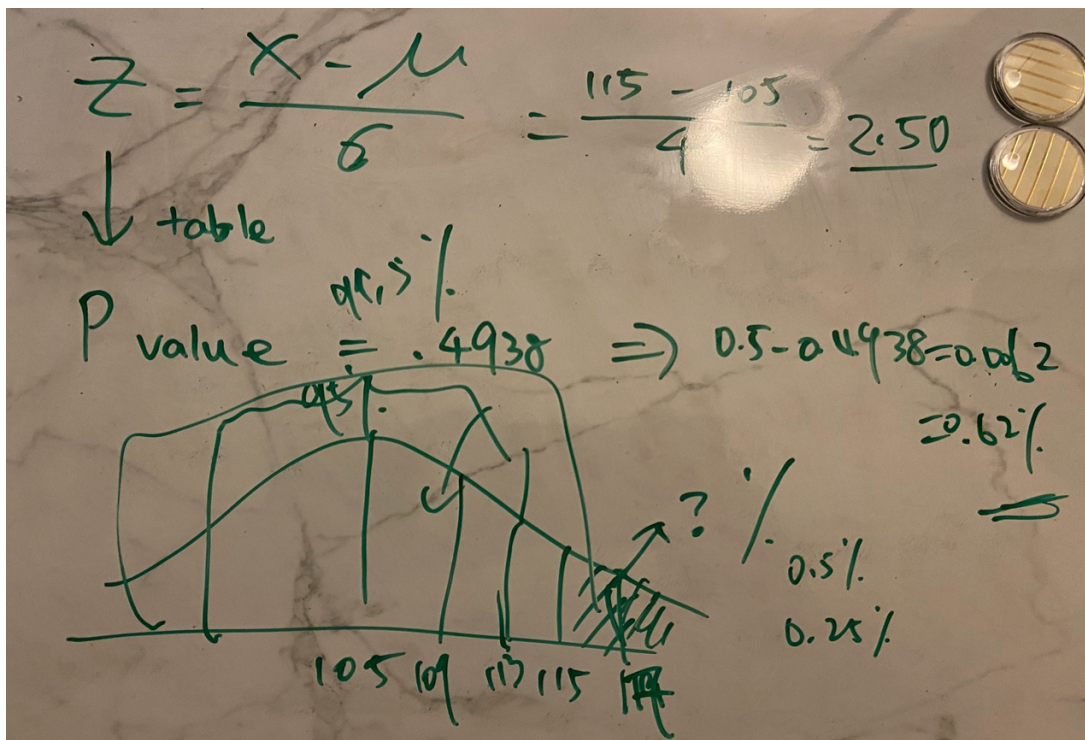 Z = X - μ / σ = 115 - 105 / 4 = 2.50
↓ table
P value = .4938 ⇒ 0.5-0.4938=0.0062
=0.62%
? %
0.5%
0.25%
105 109 113 115